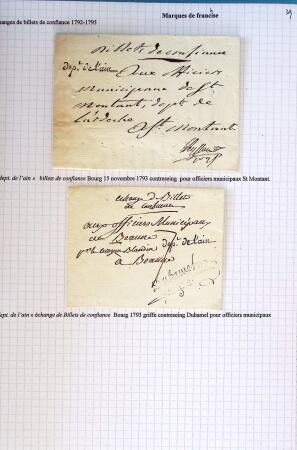 Marques de franchise
39
hanges de billets de confiance 1792-1795
Billets de confiance
Dept. de l'ain Aux officiers
Municipaux de St.
Montant, dept. de
l'ardeche
a St. Montant.
dept. de l'ain » billets de confiance Bourg 15 novembre 1793 contreseing pour officiers municipaux St Montant.
echange de Billets
de confiance
aux officiers Municipaux
de Beaune Dept. de l'ain
par le citoyen Blandin
a Beaune
Duhamel
dept. de l'ain » échange de Billets de confiance Bourg 1793 griffe contreseing Duhamel pour officiers municipaux